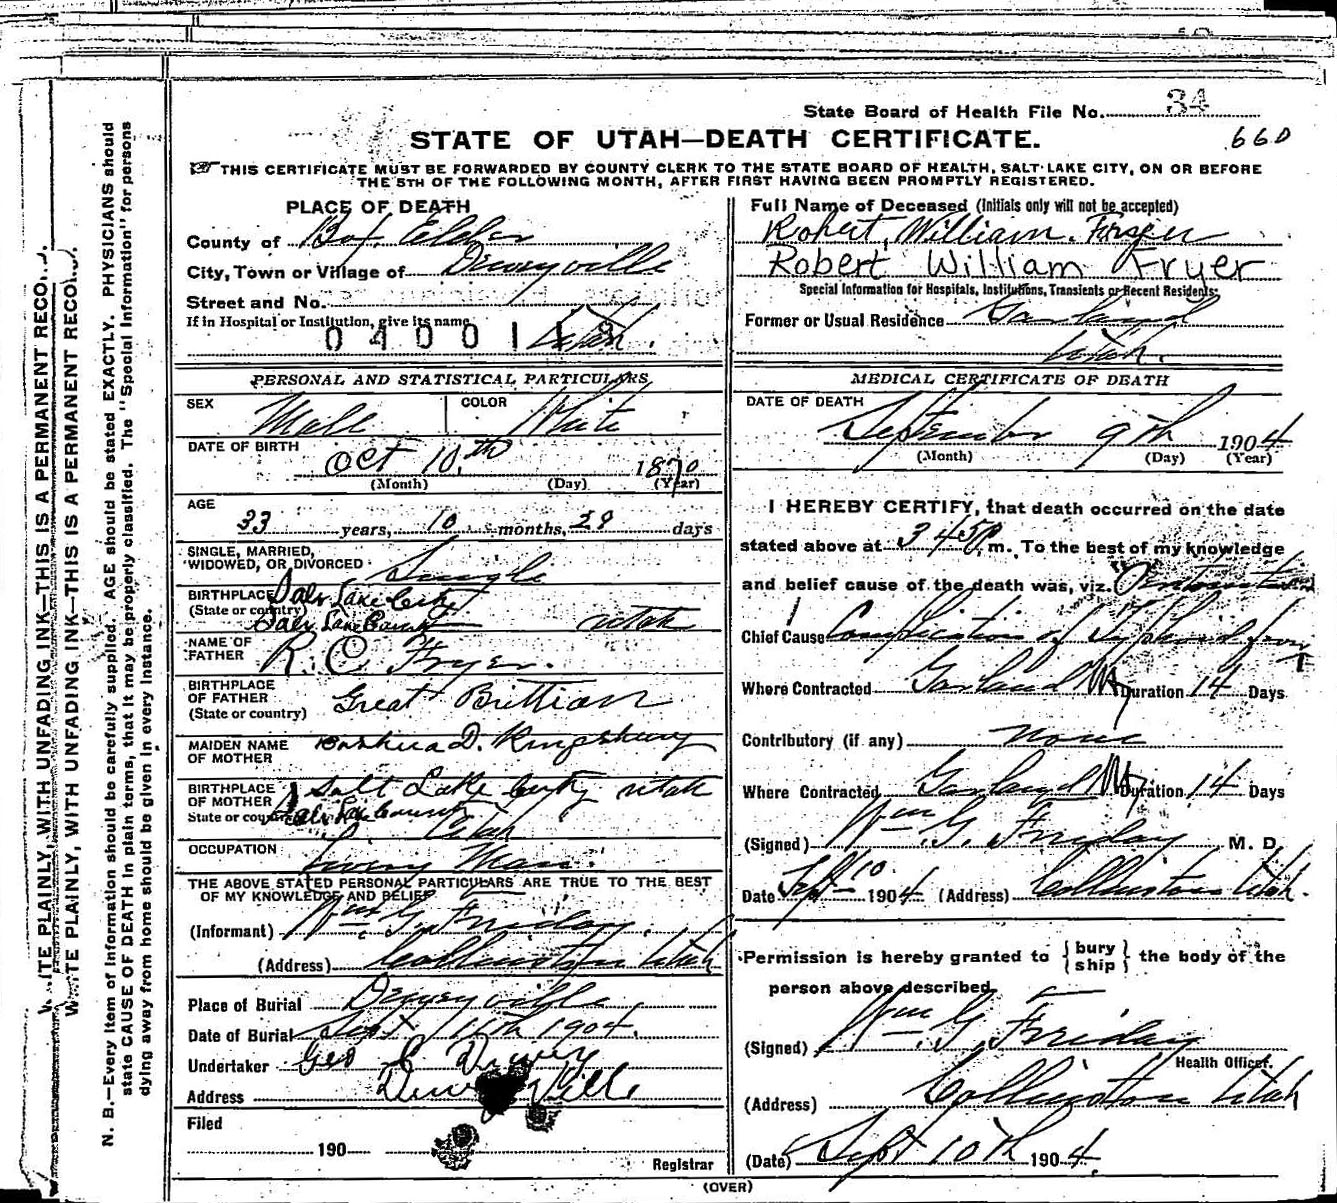 State Board of Health File No. 34
STATE OF UTAH—DEATH CERTIFICATE.
660
THIS CERTIFICATE MUST BE FORWARDED BY COUNTY CLERK TO THE STATE BOARD OF HEALTH, SALT LAKE CITY, ON OR BEFORE
THE 5TH OF THE FOLLOWING MONTH, AFTER FIRST HAVING BEEN PROMPTLY REGISTERED.
PLACE OF DEATH
County of Box Elder
City, Town or Village of Deweyville
Street and No.
If in Hospital or Institution, give its name
0400148 Utah.
PERSONAL AND STATISTICAL PARTICULARS
SEX Male COLOR White
DATE OF BIRTH
Oct 10th 1870
(Month) (Day) (Year)
AGE
33 years, 10 months, 29 days
SINGLE, MARRIED,
WIDOWED, OR DIVORCED Single
BIRTHPLACE Salt Lake City
(State or country) Salt Lake County Utah
NAME OF
FATHER R. C. Fryer.
BIRTHPLACE
OF FATHER Great Brittian
(State or country)
MAIDEN NAME
OF MOTHER D. Kingsbury
BIRTHPLACE Salt Lake City Utah
OF MOTHER
State or country Salt Lake County
Utah
OCCUPATION
Livery Man.
THE ABOVE STATED PERSONAL PARTICULARS ARE TRUE TO THE BEST
OF MY KNOWLEDGE AND BELIEF
(Informant) Wm. G. Friday.
(Address) Collinston Utah
Place of Burial Deweyville
Date of Burial Sept 11th 1904.
Undertaker Geo C Dewey
Address Deweyville
Filed
190
Registrar
Full Name of Deceased (Initials only will not be accepted)
Robert William Fryer
Robert William Fryer
Special Information for Hospitals, Institutions, Transients or Recent Residents:
Former or Usual Residence Garland
Utah.
MEDICAL CERTIFICATE OF DEATH
DATE OF DEATH
September 9th 1904
(Month) (Day) (Year)
I HEREBY CERTIFY, that death occurred on the date
stated above at 3 45 P. m. To the best of my knowledge
and belief cause of the death was, viz.
Chief Cause Complication of Typhoid
Where Contracted Garland Duration 14 Days
Contributory (if any) none
Where Contracted Garland Duration 14 Days
(Signed) Wm. G. Friday M. D.
Date Sept 10 1904 (Address) Collinston Utah.
Permission is hereby granted to { bury ship } the body of the
person above described.
(Signed) Wm. G. Friday
Health Officer.
(Address) Collinston Utah
(Date) Sept 10th 1904.
(OVER)
WRITE PLAINLY, WITH UNFADING INK—THIS IS A PERMANENT RECO
WRITE PLAINLY, WITH UNFADING INK—THIS IS A PERMANENT RECO
N. B.—Every item of information should be carefully supplied. AGE should be stated EXACTLY. PHYSICIANS should
state CAUSE OF DEATH in plain terms, that it may be properly classified. The "Special Information" for persons
dying away from home should be given in every instance.